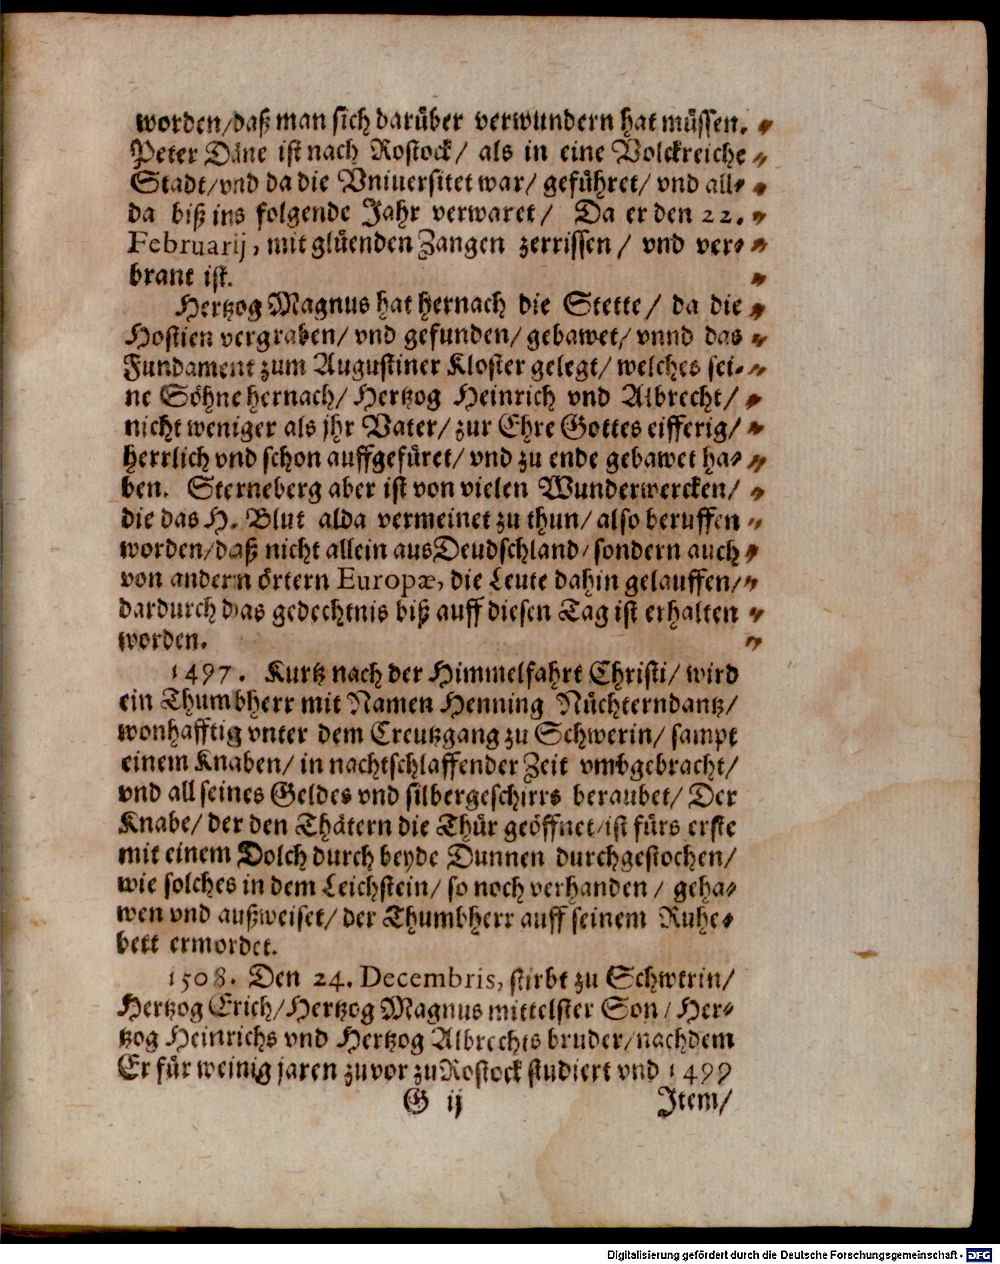 worden/daß man sich darüber verwundern hat müssen. „
Peter Däne ist nach Rostock/ als in eine Volckreiche „
Stadt/vnd da die Vniuersitet war/ geführet/ vnd all- „
da biß ins folgende Jahr verwaret/ Da er den 22. „
Februarij, mit glüenden Zangen zerrissen/ vnd ver- „
brant ist. „
Hertzog Magnus hat hernach die Stette/ da die „
Hostien vergraben/ vnd gefunden/ gebawet/ vnnd das „
Fundament zum Augustiner Kloster gelegt/ welches sei- „
ne Söhne hernach/ Hertzog Heinrich vnd Albrecht/ „
nicht weniger als jhr Vater/ zur Ehre Gottes eifferig/ „
herrlich vnd schon auffgefüret/ vnd zu ende gebawet ha- „
ben. Sterneberg aber ist von vielen Wunderwercken/ „
die das H. Blut alda vermeinet zu thun/ also beruffen „
worden/daß nicht allein aus Deudschland/ sondern auch „
von andern örtern Europæ, die Leute dahin gelauffen/ „
dardurch das gedechtnis biß auff diesen Tag ist erhalten „
worden. „
1497. Kurtz nach der Himmelfahrt Christi/ wird
ein Thumbherr mit Namen Henning Nüchterndantz/
wonhafftig vnter dem Creutzgang zu Schwerin/ sampt
einem Knaben/ in nachtschlaffender Zeit vmbgebracht/
vnd all seines Geldes vnd silbergeschirrs beraubet/ Der
Knabe/ der den Thätern die Thür geöffnet/ist fürs erste
mit einem Dolch durch beyde Dunnen durchgestochen/
wie solches in dem Leichstein/ so noch verhanden/ geha-
wen vnd außweiset/ der Thumbherr auff seinem Ruhe-
bett ermordet.
1508. Den 24. Decembris, stirbt zu Schwerin/
Hertzog Erich/Hertzog Magnus mittelster Son/ Her-
tzog Heinrichs vnd Hertzog Albrechts bruder/nachdem
Er für weinig jaren zuvor zu Rostock studiert vnd 1499
G ij Item/
Digitalisierung gefördert durch die Deutsche Forschungsgemeinschaft - DFG